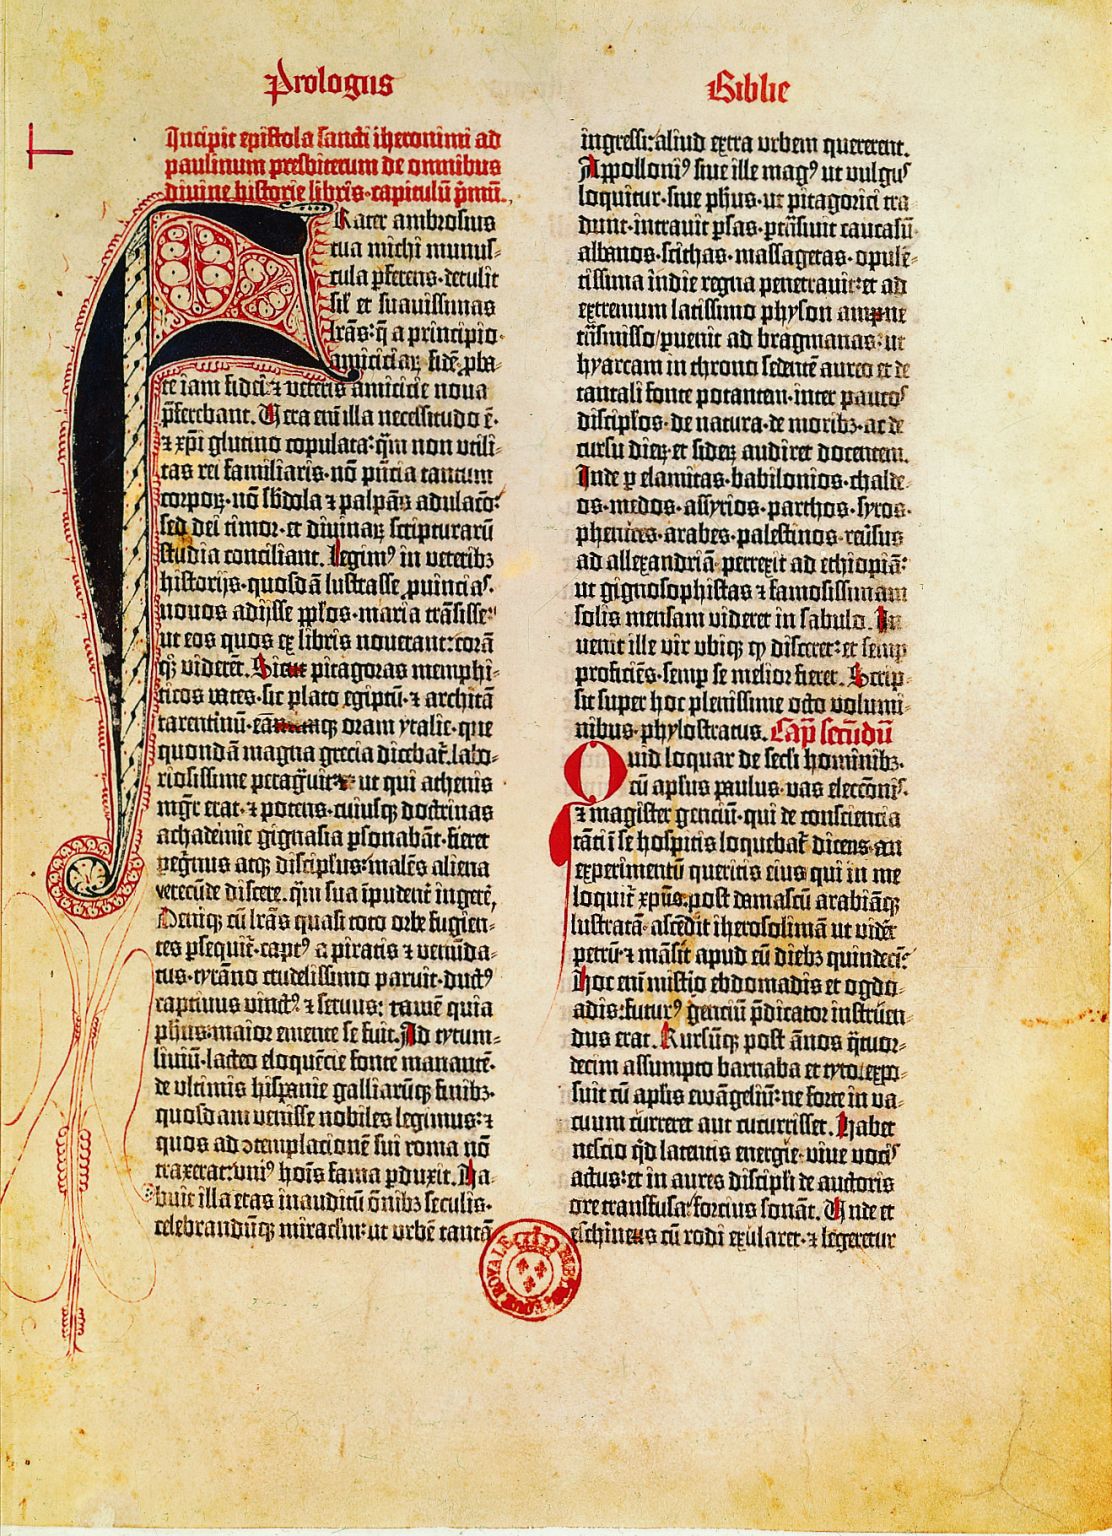 Prologus
Biblie
Incipit epistola sancti iheronimi ad
paulinum presbiterum de omnibus
divine historie libris · capitulū p̄mū.
Frater ambrosius
tua michi munus-
cula ꝑferens · detulit
sil̄ et suavissimas
lr̄as : q̄ a principio
amiciciaꝝ · fidē ꝓba-
te iam fidei ⁊ veteris amicicie nova
p̄ferebant. Vera em̄ illa necessitudo ē ·
⁊ xp̄i glutino copulata : q̄m non utili-
tas rei familiaris · nō p̄ncia tantum
corpoꝝ · nō sb̄dola ⁊ palpās adulacō :
sed dei timor · et divinaꝝ scripturarū
studia conciliant. Legimꝰ in veteribꝫ
historijs · quosdā lustrasse ꝓuincias ·
novos adijsse pp̄los · maria trāsisse :
ut eos quos ex libris noverant : corā
qꝫ viderēt. Sicut pitagoras memphi-
ticos vates · sic plato egiptū · ⁊ architā
tarentinū · eādemqꝫ oram ytalie · que
quondā magna grecia dicebat᷑ · labo-
riosissime peragrvit : ut qui athenis
mgr̄ erat · ⁊ potens · cuiusqꝫ doctrinas
achademie gignasia ꝑsonabāt · fieret
pegrinus atqꝫ discipulus : malēs aliena
verecūde discere · q̄m sua īpudent᷑ ingerē,
Deniqꝫ cū lr̄as quasi toto orbe fugien-
tes ꝑsequit᷑ · captꝰ a piratis ⁊ venūda-
tus · tyrāno crudelissimo paruit · ductꝰ
captiuus vinctꝰ ⁊ seruus : tamē quia
ph̄us · maior emente se fuit. Ad tytum-
liuiū · lacteo eloquēcie fonte manantē ·
de ultimis hispanie galliarūqꝫ finibꝫ ·
quosdam venisse nobiles legimus : ⁊
quos ad ꝯtemplacionē sui roma nō
traxerat : vniꝰ hoīs fama ꝑduxit. Ha-
buit illa etas inauditū om̄ibꝫ seculis ·
celebrandūqꝫ miraclm̄ : ut urbē tantā
ingressi : aliud extra urbem quererent.
Appolloniꝰ siue ille magꝰ ut vulgus
loquitur · siue ph̄us · ut pitagorici tra-
dunt · intrauit ꝑsas · ꝑtrāsiuit caucasū
albanos · scithas · massagetas · opulē-
tissima indie regna penetrauit : et ad
extremum latissimo physon ampne
trāsmisso ꝑuenit ad bragmanas : ut
hyarcam in throno sedentē aureo et de
tantali fonte potantem · inter paucos
discipl̄os · de natura · de moribꝫ · ac de
cursu dieꝝ et sideꝝ audiret docentem.
Inde ꝑ elamitas · babilonios · chalde-
os · medos · assyrios · parthos · syros ·
phenices · arabes · palestinos · reu̅sus
ad allexandriā · perrexit ad ethiopiā :
ut gignosophistas ⁊ famosissimam
solis mensam videret in sabulo. In-
venit ille vir vbiqꝫ qd̄ disceret : et semp
proficiēs · semp se melior fieret. Scrip-
sit super hoc plenissime octo volumi-
nibus · phylostratus. Cap̄ secūdū
Quid loquar de secli hominibꝫ ·
cū apl̄us paulus · vas eleccōnis ·
⁊ magister genciū · qui de consciencia
tāti ī se hospitis loquebat᷑ · dicens · an
experimentū queritis eius qui in me
loquit᷑ xp̄us · post damascū arabiāqꝫ
lustratā · ascēdit iherosolimā ut viderꝫ
petrū · ⁊ māsit apud eū diebꝫ quindecī :
Hoc em̄ misterio ebdomadis et ogdo-
adis : futurꝰ genciū p̄dicator instruen-
dus erat. Rursūqꝫ post ānos q̄tuor-
decim assumpto barnaba et tyto · expo-
suit cū apl̄is ewāgeliū : ne forte in va-
cuum curreret aut cucurrisset. Habet
nescio qd̄ latentis energie · viue vocis
actus : et in aures discipli de auctoris
ore transfusa : forcius sonāt. Vnde et
eschines cū rodi exularet · ⁊ legeretur
BIBLIOTHEQUE ROYALE